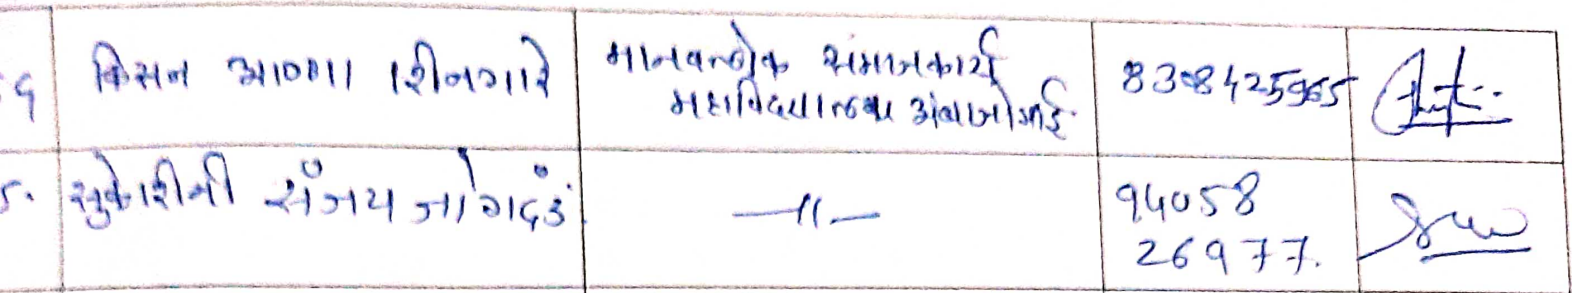 किसन आण्णा शिनगारे
मानवलोक समाजकार्य
महाविद्यालय अंबाजोगाई.
8308425965
सुकेशीनी संजय जोगदंड
—॥—
94058
26977.